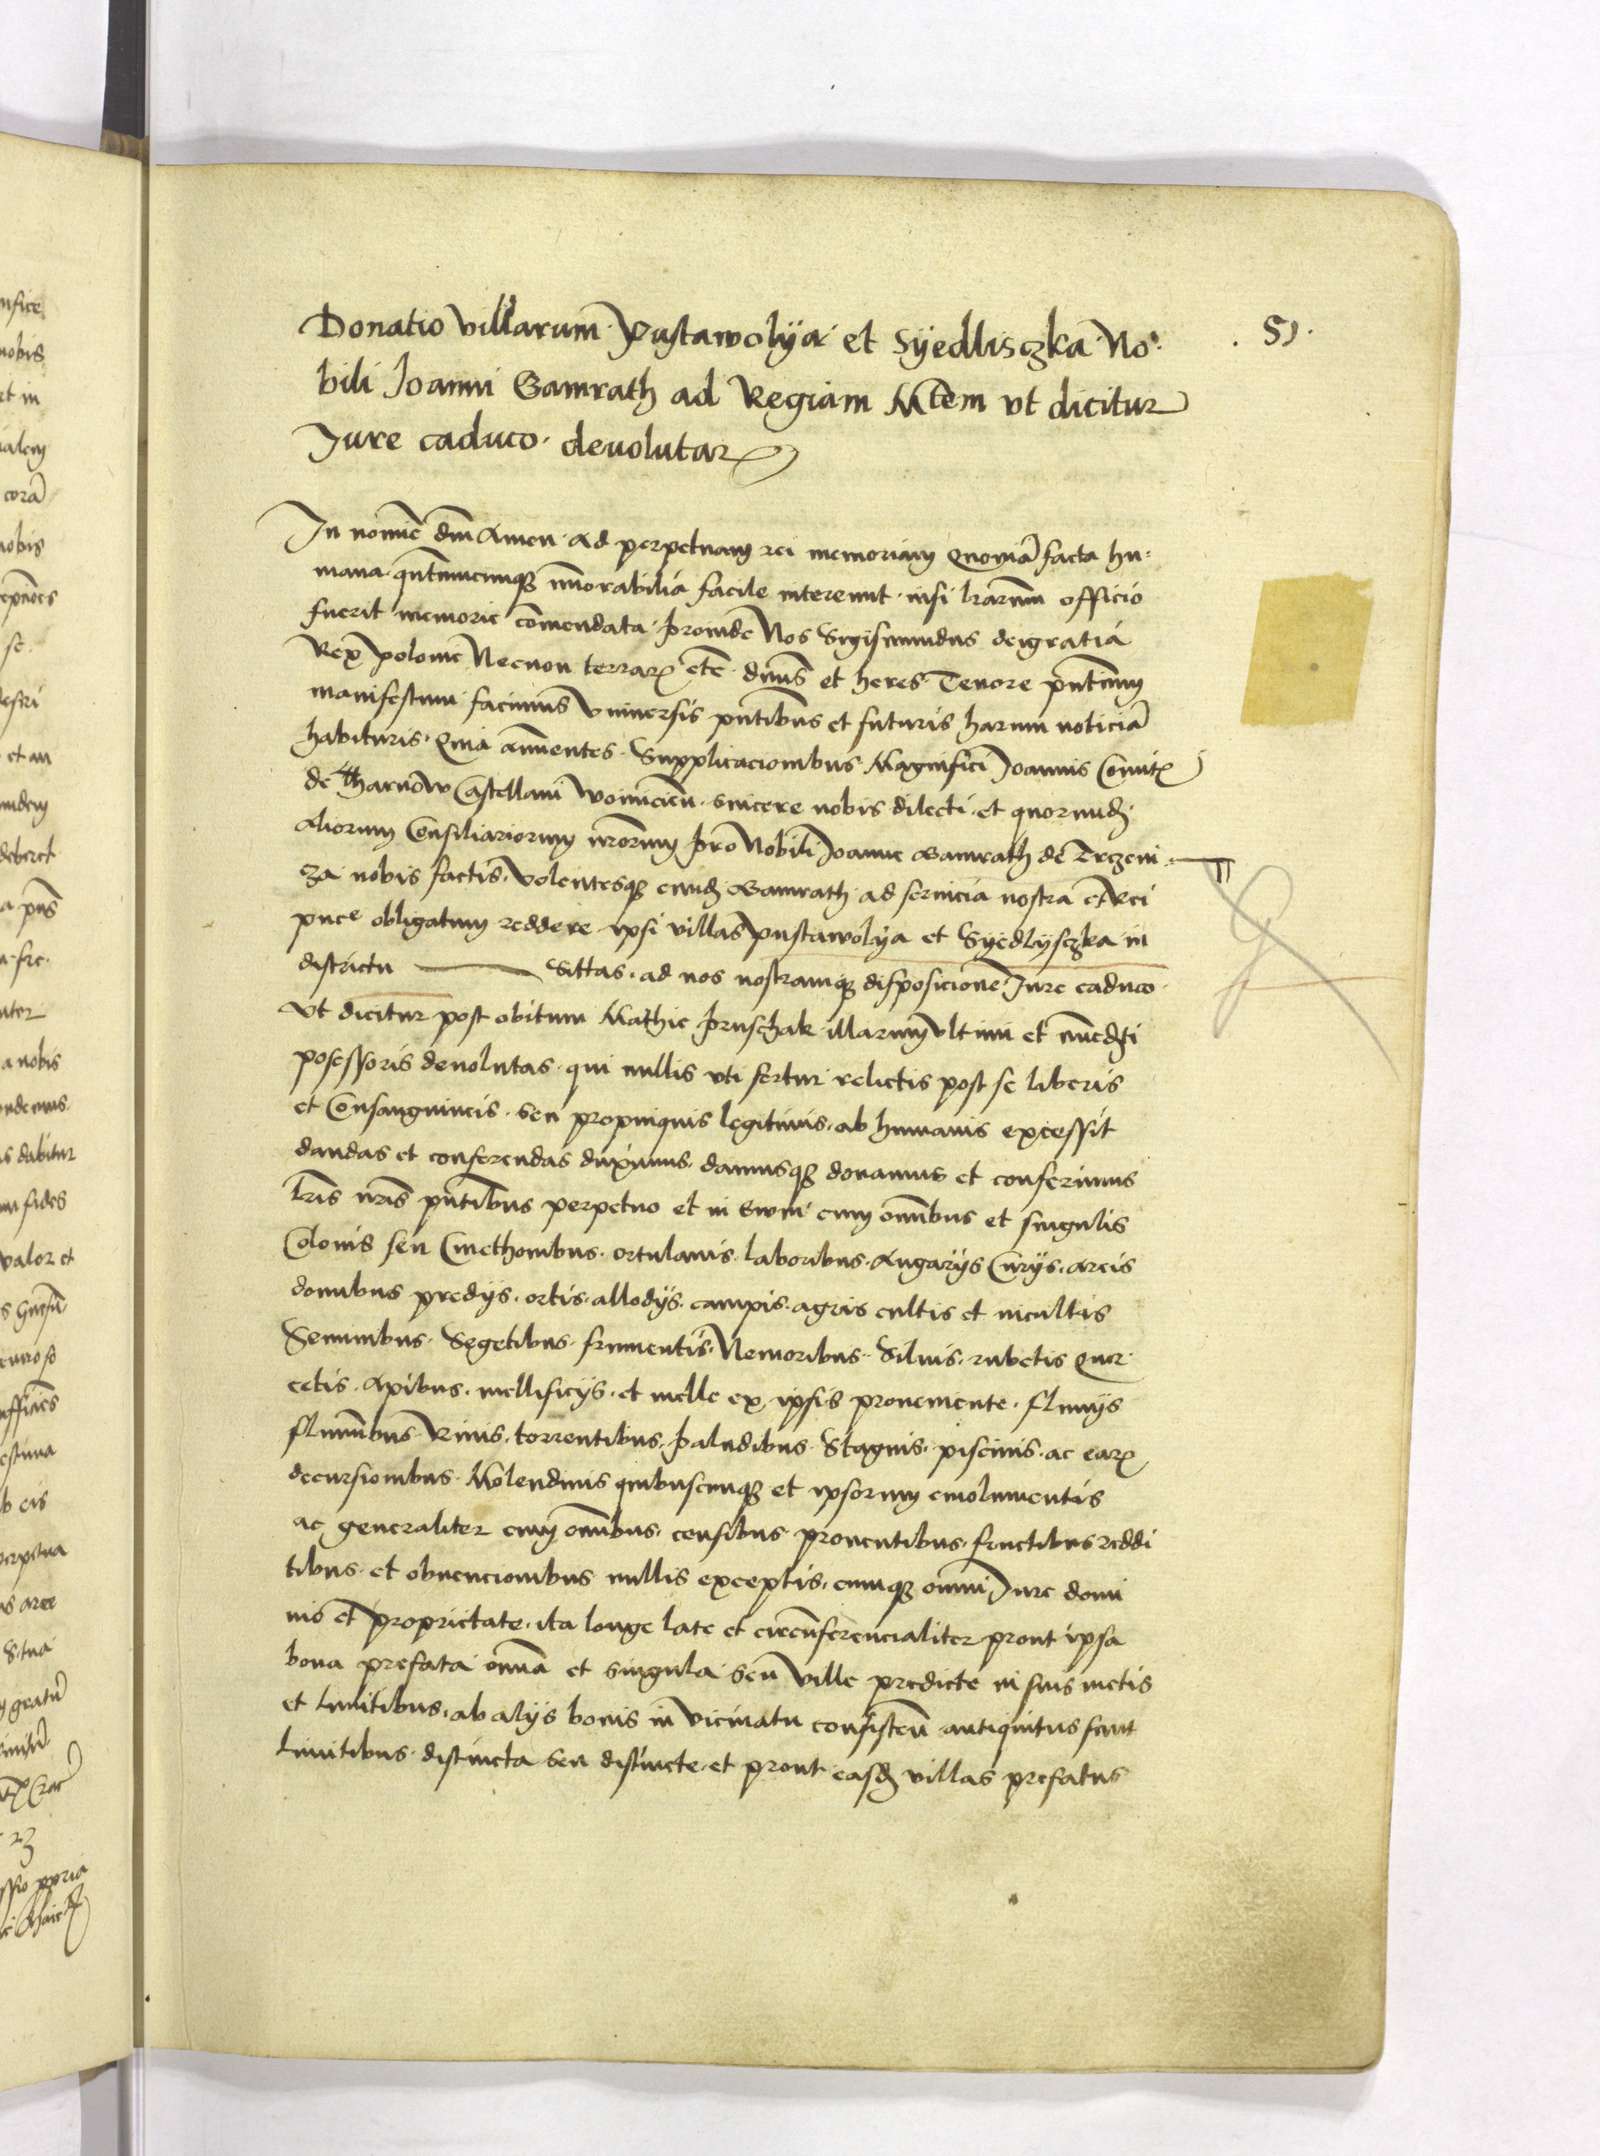 Donatio villarum pustawolya et Syedlisczka No
51.
bili Joanni Gamrath ad Regiam Mtem vt dicitur
Jure caduco devolutar
In nomine dni Amen Ad perpetuam rei memoriam Quoniam facta hu
mana quntumcumque memorabilia facile intereunt nisi lrarum officio
fuerit memorie comendata proinde Nos Sigismundus dei gratia
Rex polonie Necnon terrar etc dnus et heres Tenore pntium
manifestum facimus Vniuersis pntibus et futuris harum noticia
habituris Quia annuentes Supplicacionibus Magnifici Joannis Comit
de Tharnow Castellani woinicien sincere nobis dilecti et quorund
aliorum Consiliariorum nrorum pro Nobili Joanne Gamrath de Trczeni
cza nobis factis volentesque eund Gamrath ad seruicia nostra et Rei
puce obligatum reddere ipsi villas pustawolya et Syedlysczka in
districtu Sittas ad nos nostramque disposicione Jure caduco
Vt dicitur post obitum Mathie pruschak illarum vltimi et
possessoris deuolutas qui nullis vti fertur relictis post se liberis
et Consanguineis seu propinquis legitimis ab humanis excessit
dandas et conferendas duximus damusque donamus et conferimus
lris nris pntibus perpetuo et in euum cum omnibus et singulis
Colonis seu Cmethonibus ortulanis laboribus Angariis Curiis areis
domibus prediis ortis allodiis campis agris cultis et incultis
Seminibus Segetibus frumentis Nemoribus Siluis rubetis Quer
cetis Apibus mellificiis et melle ex ipsis proueniente fluuiis
fluminibus Riuis torrentibus paludibus Stagnis piscinis ac ear
decursionibus Molendinis quibuscumque et ipsorum emolumentis
ac generaliter cum omnibus censibus prouentibus fructibus reddi
tibus et obuencionibus nullis exceptis cumque omni Jure domi
nio et proprietate ita longe late et circumferencialiter prout ipsa
bona prefata omnia et singula seu ville predicte in suis metis
et limitibus ab aliis bonis in vicinatu consisten antiquitus sunt
limitibus distincta seu distincte et prout easd villas prefatus